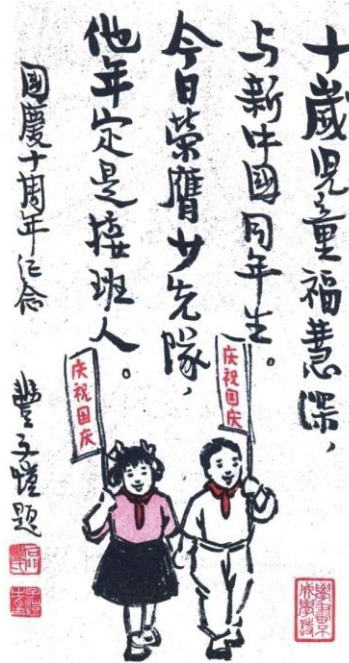 十歲兒童福慧深，
与新中國同年生。
今日榮膺少先隊，
他年定是接班人。
國慶十周年纪念
豐子愷題
庆祝国庆
庆祝国庆